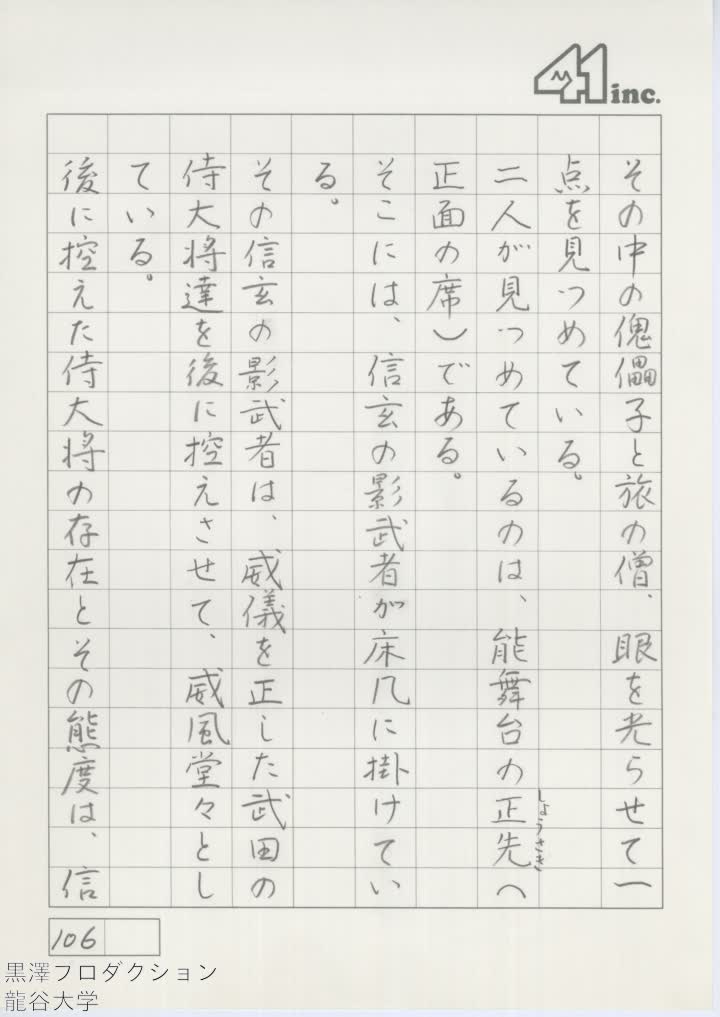 41 inc.
その中の傀儡子と旅の僧、眼を光らせて一
点を見つめている。
二人が見つめているのは、能舞台の正先（
しょうさき
正面の席）である。
そこには、信玄の影武者が床几に掛けてい
る。
その信玄の影武者は、威儀を正した武田の
侍大将達を後に控えさせて、威風堂々とし
ている。
後に控えた侍大将の存在とその態度は、信
106
黒澤プロダクション
龍谷大学